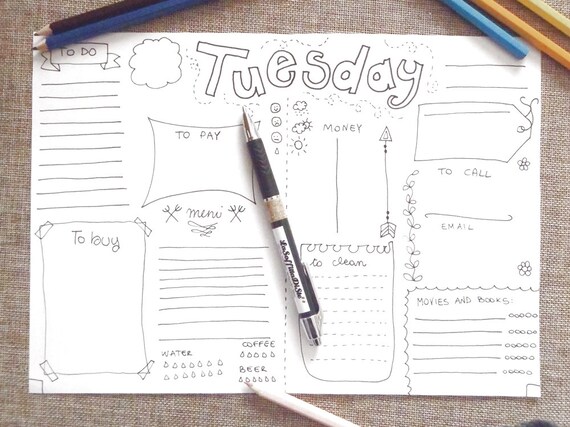 TO DO
Tuesday
TO PAY
MONEY
TO CALL
menu
EMAIL
To buy
to clean
MOVIES AND BOOKS:
WATER
COFFEE
BEER